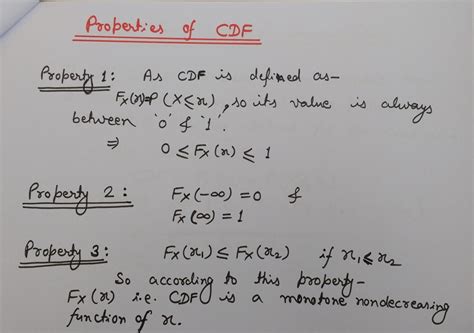 Properties of CDF
Property 1: As CDF is defined as-
Fx(x)=P (X≤x), so its value is always
between '0' & '1'.
⇒ 0 ≤ Fx(x) ≤ 1
Property 2: Fx(-∞) = 0 &
Fx(∞) = 1
Property 3: Fx(x₁) ≤ Fx(x₂) if x₁ ≤ x₂
So according to this property-
Fx(x) i.e. CDF is a monotone nondecreasing
function of x.